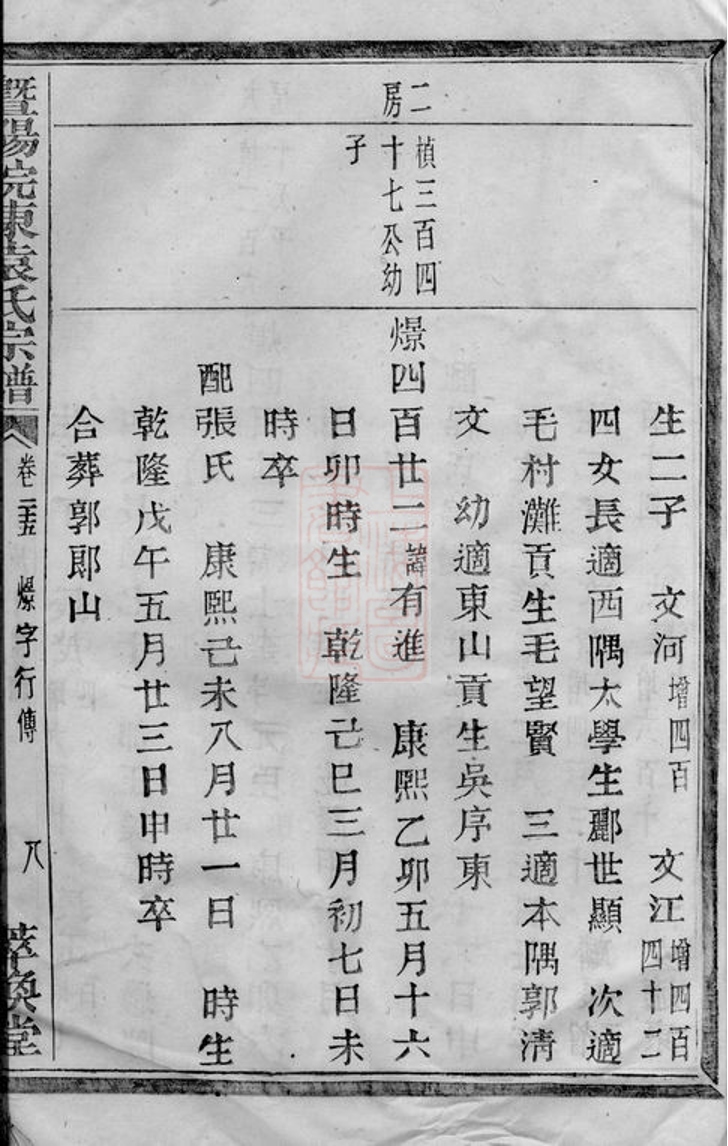 二
房
楨三百四
十七公幼
子
生二子 文河增四百 文江增四百四十二
四女長適西隅太學生酈世顯 次適
毛村灘貢生毛望賢 三適本隅郭清
文 幼適東山貢生吳序東
燝四百廿二諱有進 康熙乙卯五月十六
日卯時生 乾隆己巳三月初七日未
時卒
配張氏 康熙己未八月廿一日 時生
乾隆戊午五月廿三日申時卒
合葬郭郎山
暨陽浣東袁氏宗譜 卷二十五 燝字行傳 八 萃渙堂